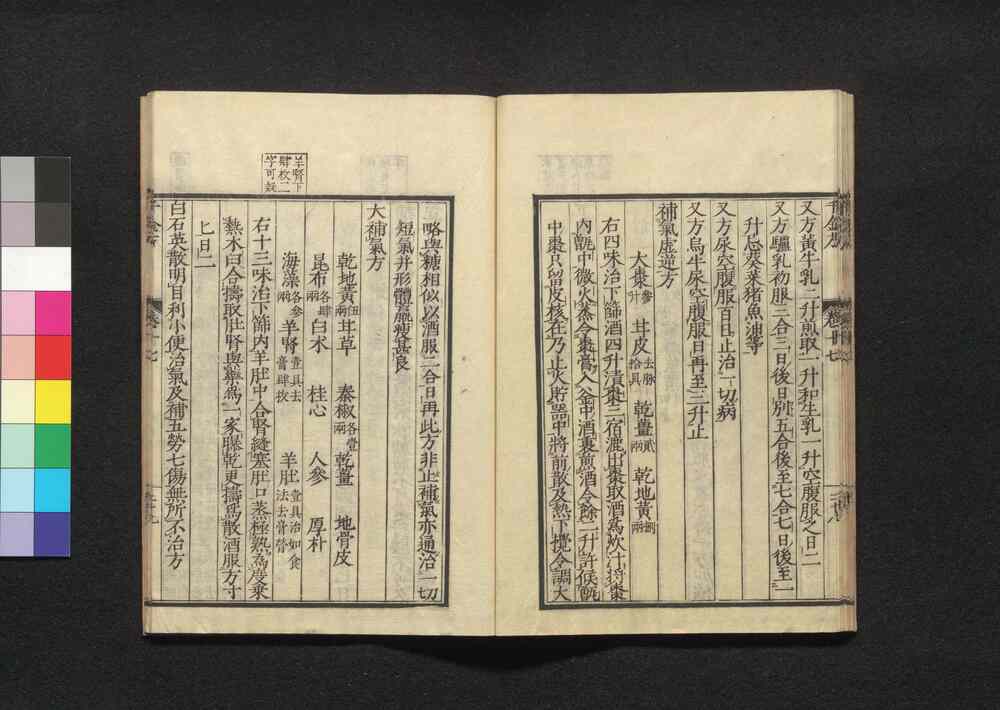 又方黃牛乳二升煎取一升和生乳一升空腹服之日二
又方驢乳初服二合三日後日別五合後至七合七日後至一
升忌葵菜猪魚油等
又方尿空腹服百日止治一切病
又方烏牛尿空腹服日再至三升止
補氣虛逆方
大棗參升 甘皮去脉拾具 乾薑貳兩 乾地黃
右四味治下篩酒四升漬棗三宿漉出棗取酒爲炊汁將棗
内甑中微火蒸令棗膏入釜中酒裏煎酒令餘二升許候甑
中棗只留皮核在乃止火貯器中將前散及熱下攪令調大
略與糖相似以酒服二合日再此方非止補氣亦通治一切
短氣并形體羸瘦甚良
大補氣方
乾地黃伍兩 甘草 秦椒各壹兩 乾薑 地骨皮
昆布各肆兩 白朮 桂心 人參 厚朴
海藻各參兩 羊腎壹具去膏肆枚 羊肚壹具治如食法去膏膋
右十三味治下篩内羊肚中合腎縫塞肚口蒸極熟爲度乘
熱木臼合擣取肚腎與藥爲一家曝乾更擣爲散酒服方寸
匕日二
白石英散明目利小便治氣及補五勞七傷無所不治方
羊腎下
肆枚二
字可疑
卷十七